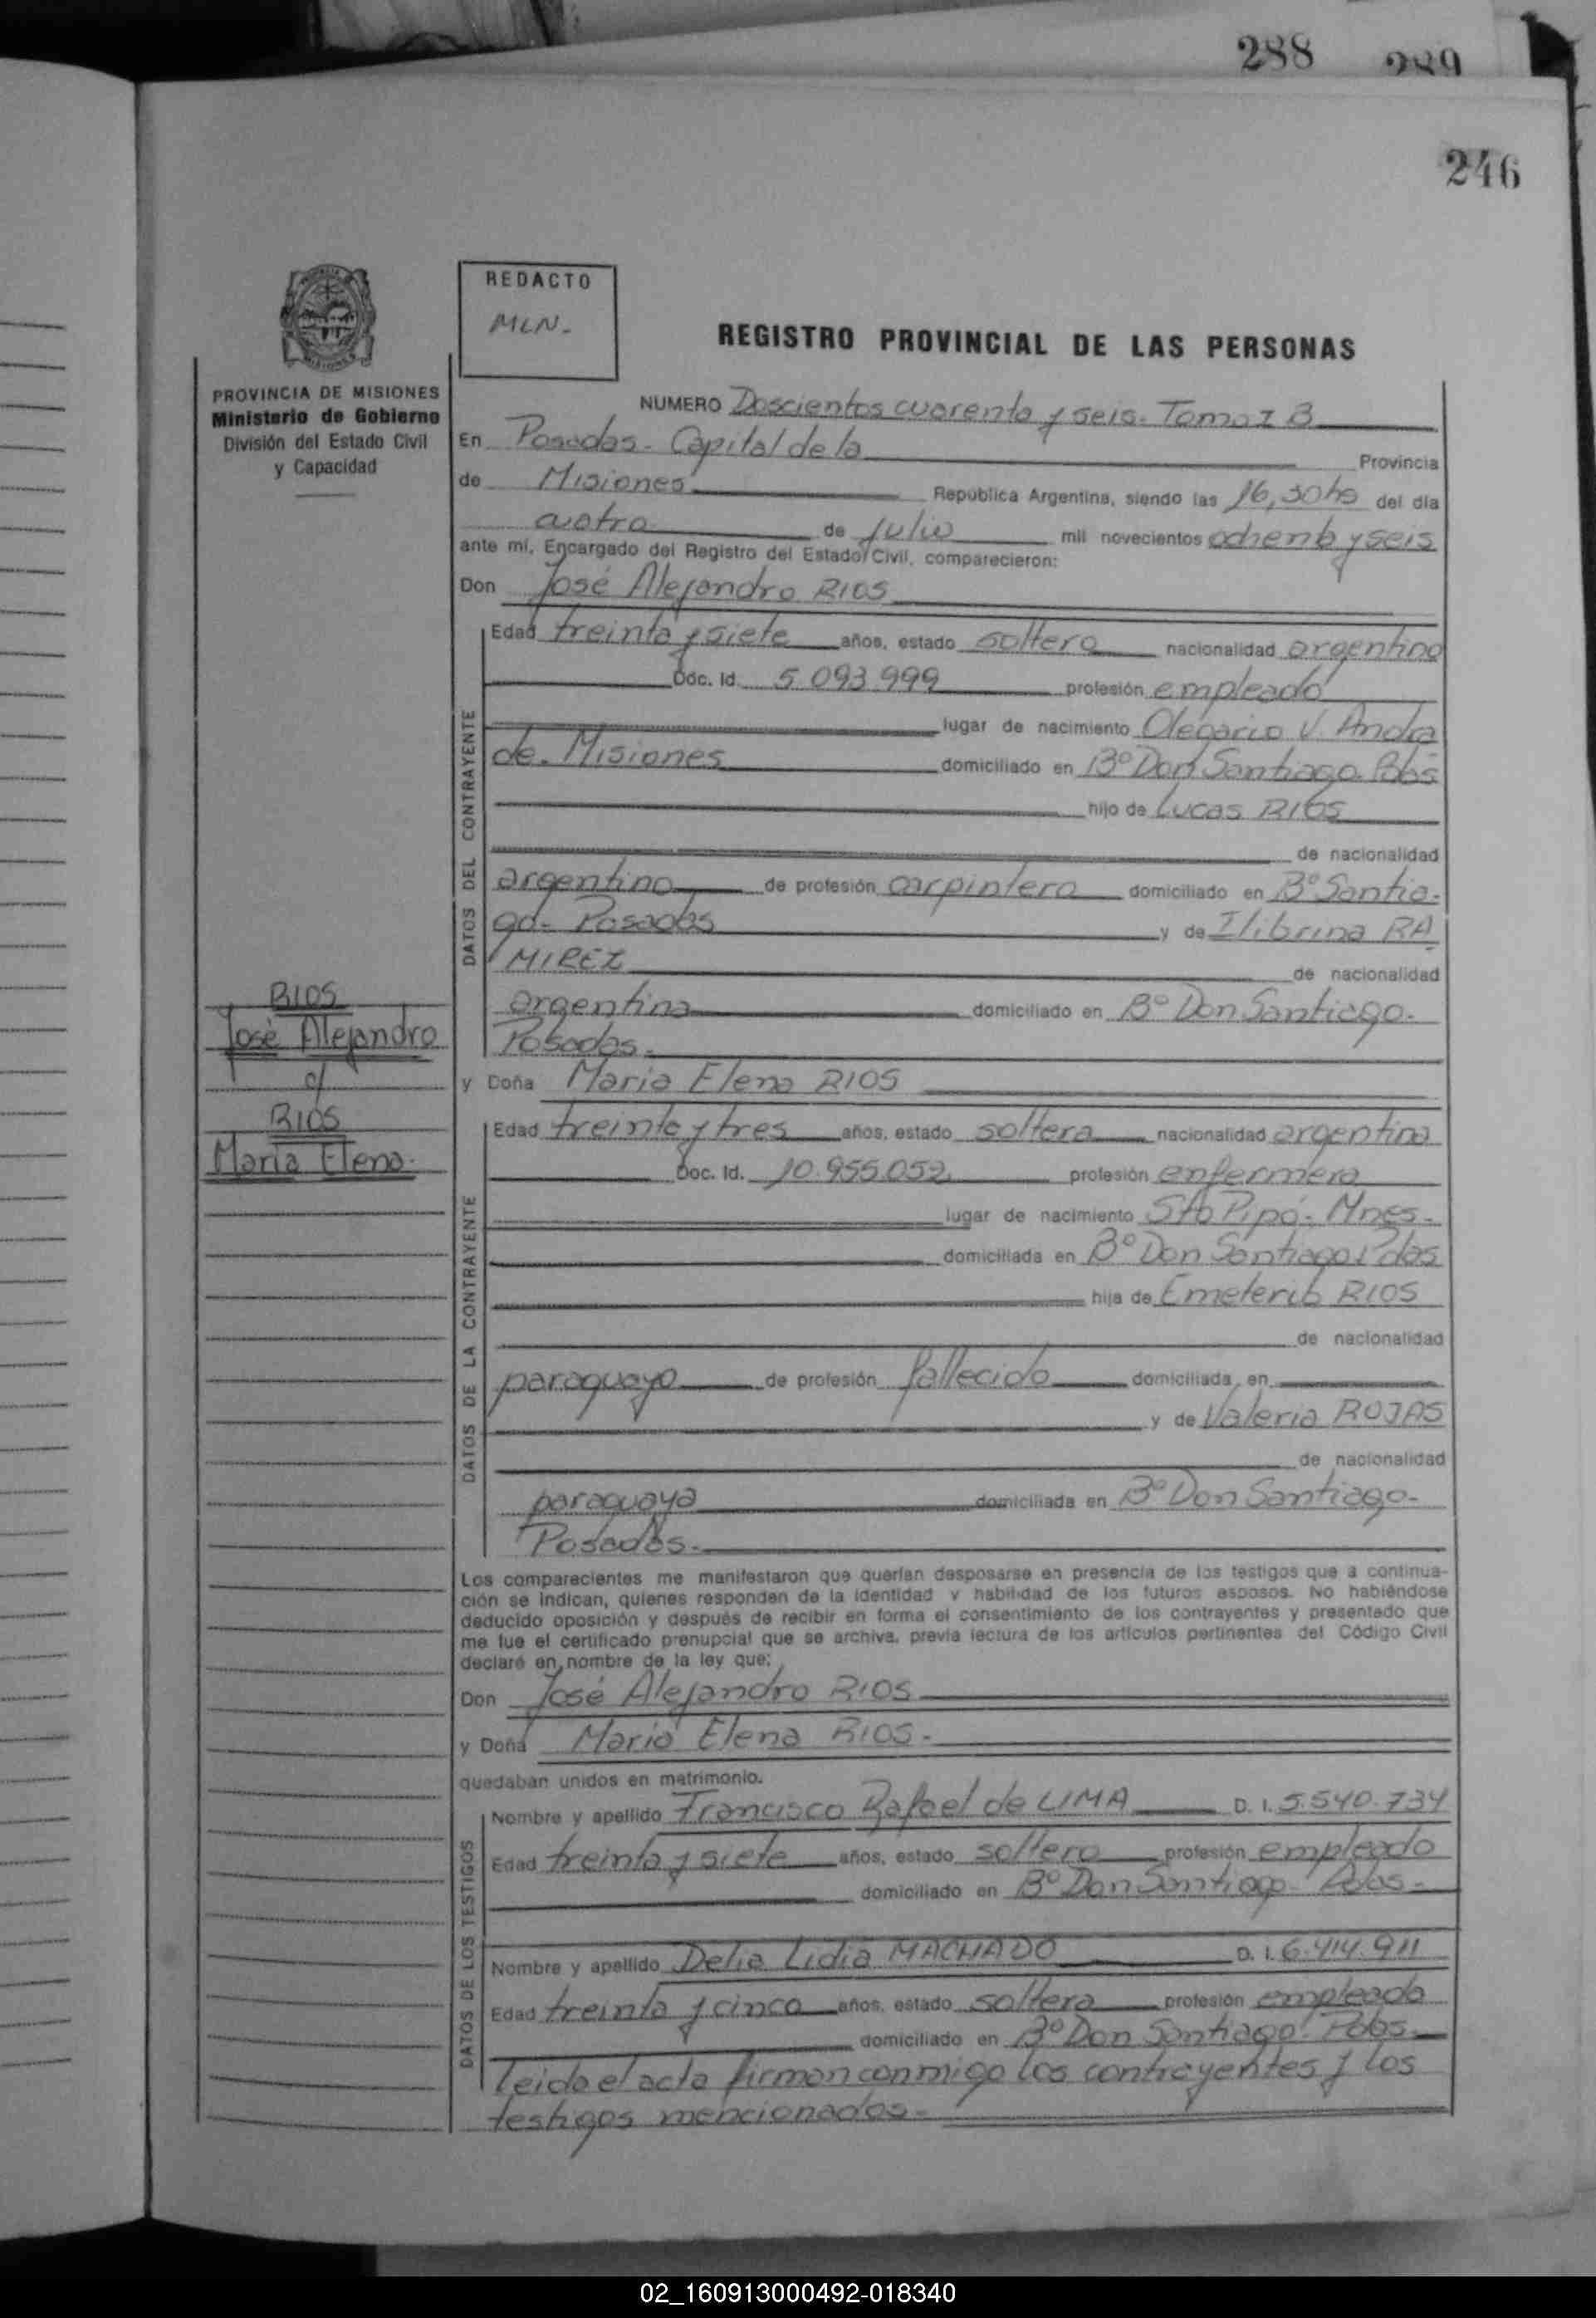 288 289
246
REDACTO
MLN.-
REGISTRO PROVINCIAL DE LAS PERSONAS
PROVINCIA DE MISIONES
Ministerio de Gobierno
División del Estado Civil
y Capacidad
NUMERO Doscientos cuarenta y seis. Tomo I B
En Posadas - Capital de la Provincia
de Misiones República Argentina, siendo las 16,30hs del día
cuatro de Julio mil novecientos ochenta y seis
ante mí, Encargado del Registro del Estado Civil, comparecieron:
Don José Alejandro RIOS
DATOS DEL CONTRAYENTE
Edad treinta y siete años, estado soltero nacionalidad argentino
Doc. Id. 5.093.999 profesión empleado
lugar de nacimiento Olegario V. Andra
de. Misiones domiciliado en B° Don Santiago. Pdas
hijo de Lucas RIOS
de nacionalidad
argentino de profesión carpintero domiciliado en B° Santia-
go- Posadas y de Ilibrina RA
MIREZ de nacionalidad
argentina domiciliado en B° Don Santiago-
Posadas.-
RIOS
José Alejandro
c/
RIOS
María Elena.
y Doña Maria Elena RIOS
DATOS DE LA CONTRAYENTE
Edad treinta y tres años, estado soltera nacionalidad argentina
Doc. Id. 10.955.052 profesión enfermera
lugar de nacimiento Sto Pipó- Mnes-
domiciliada en B° Don Santiago. Pdas
hija de Emeterio RIOS
de nacionalidad
paraguayo de profesión fallecido domiciliada en
y de Valeria ROJAS
de nacionalidad
paraguaya domiciliada en B° Don Santiago-
Posadas.-
Los comparecientes me manifestaron que querían desposarse en presencia de los testigos que a continua-
ción se indican, quienes responden de la identidad y habilidad de los futuros esposos. No habiéndose
deducido oposición y después de recibir en forma el consentimiento de los contrayentes y presentado que
me fue el certificado prenupcial que se archiva, previa lectura de los artículos pertinentes del Código Civil
declaré en nombre de la ley que:
Don José Alejandro RIOS
y Doña Maria Elena RIOS.-
quedaban unidos en matrimonio.
DATOS DE LOS TESTIGOS
Nombre y apellido Francisco Rafael de LIMA D. I. 5.540.734
Edad treinta y siete años, estado soltero profesión empleado
domiciliado en B° Don Santiago- Pdas.-
Nombre y apellido Delia Lidia MACHADO D. I. 6.414.911
Edad treinta y cinco años, estado soltera profesión empleada
domiciliado en B° Don Santiago. Pdas.-
Leida el acta firman conmigo los contrayentes y los
testigos mencionados.-
02_160913000492-018340